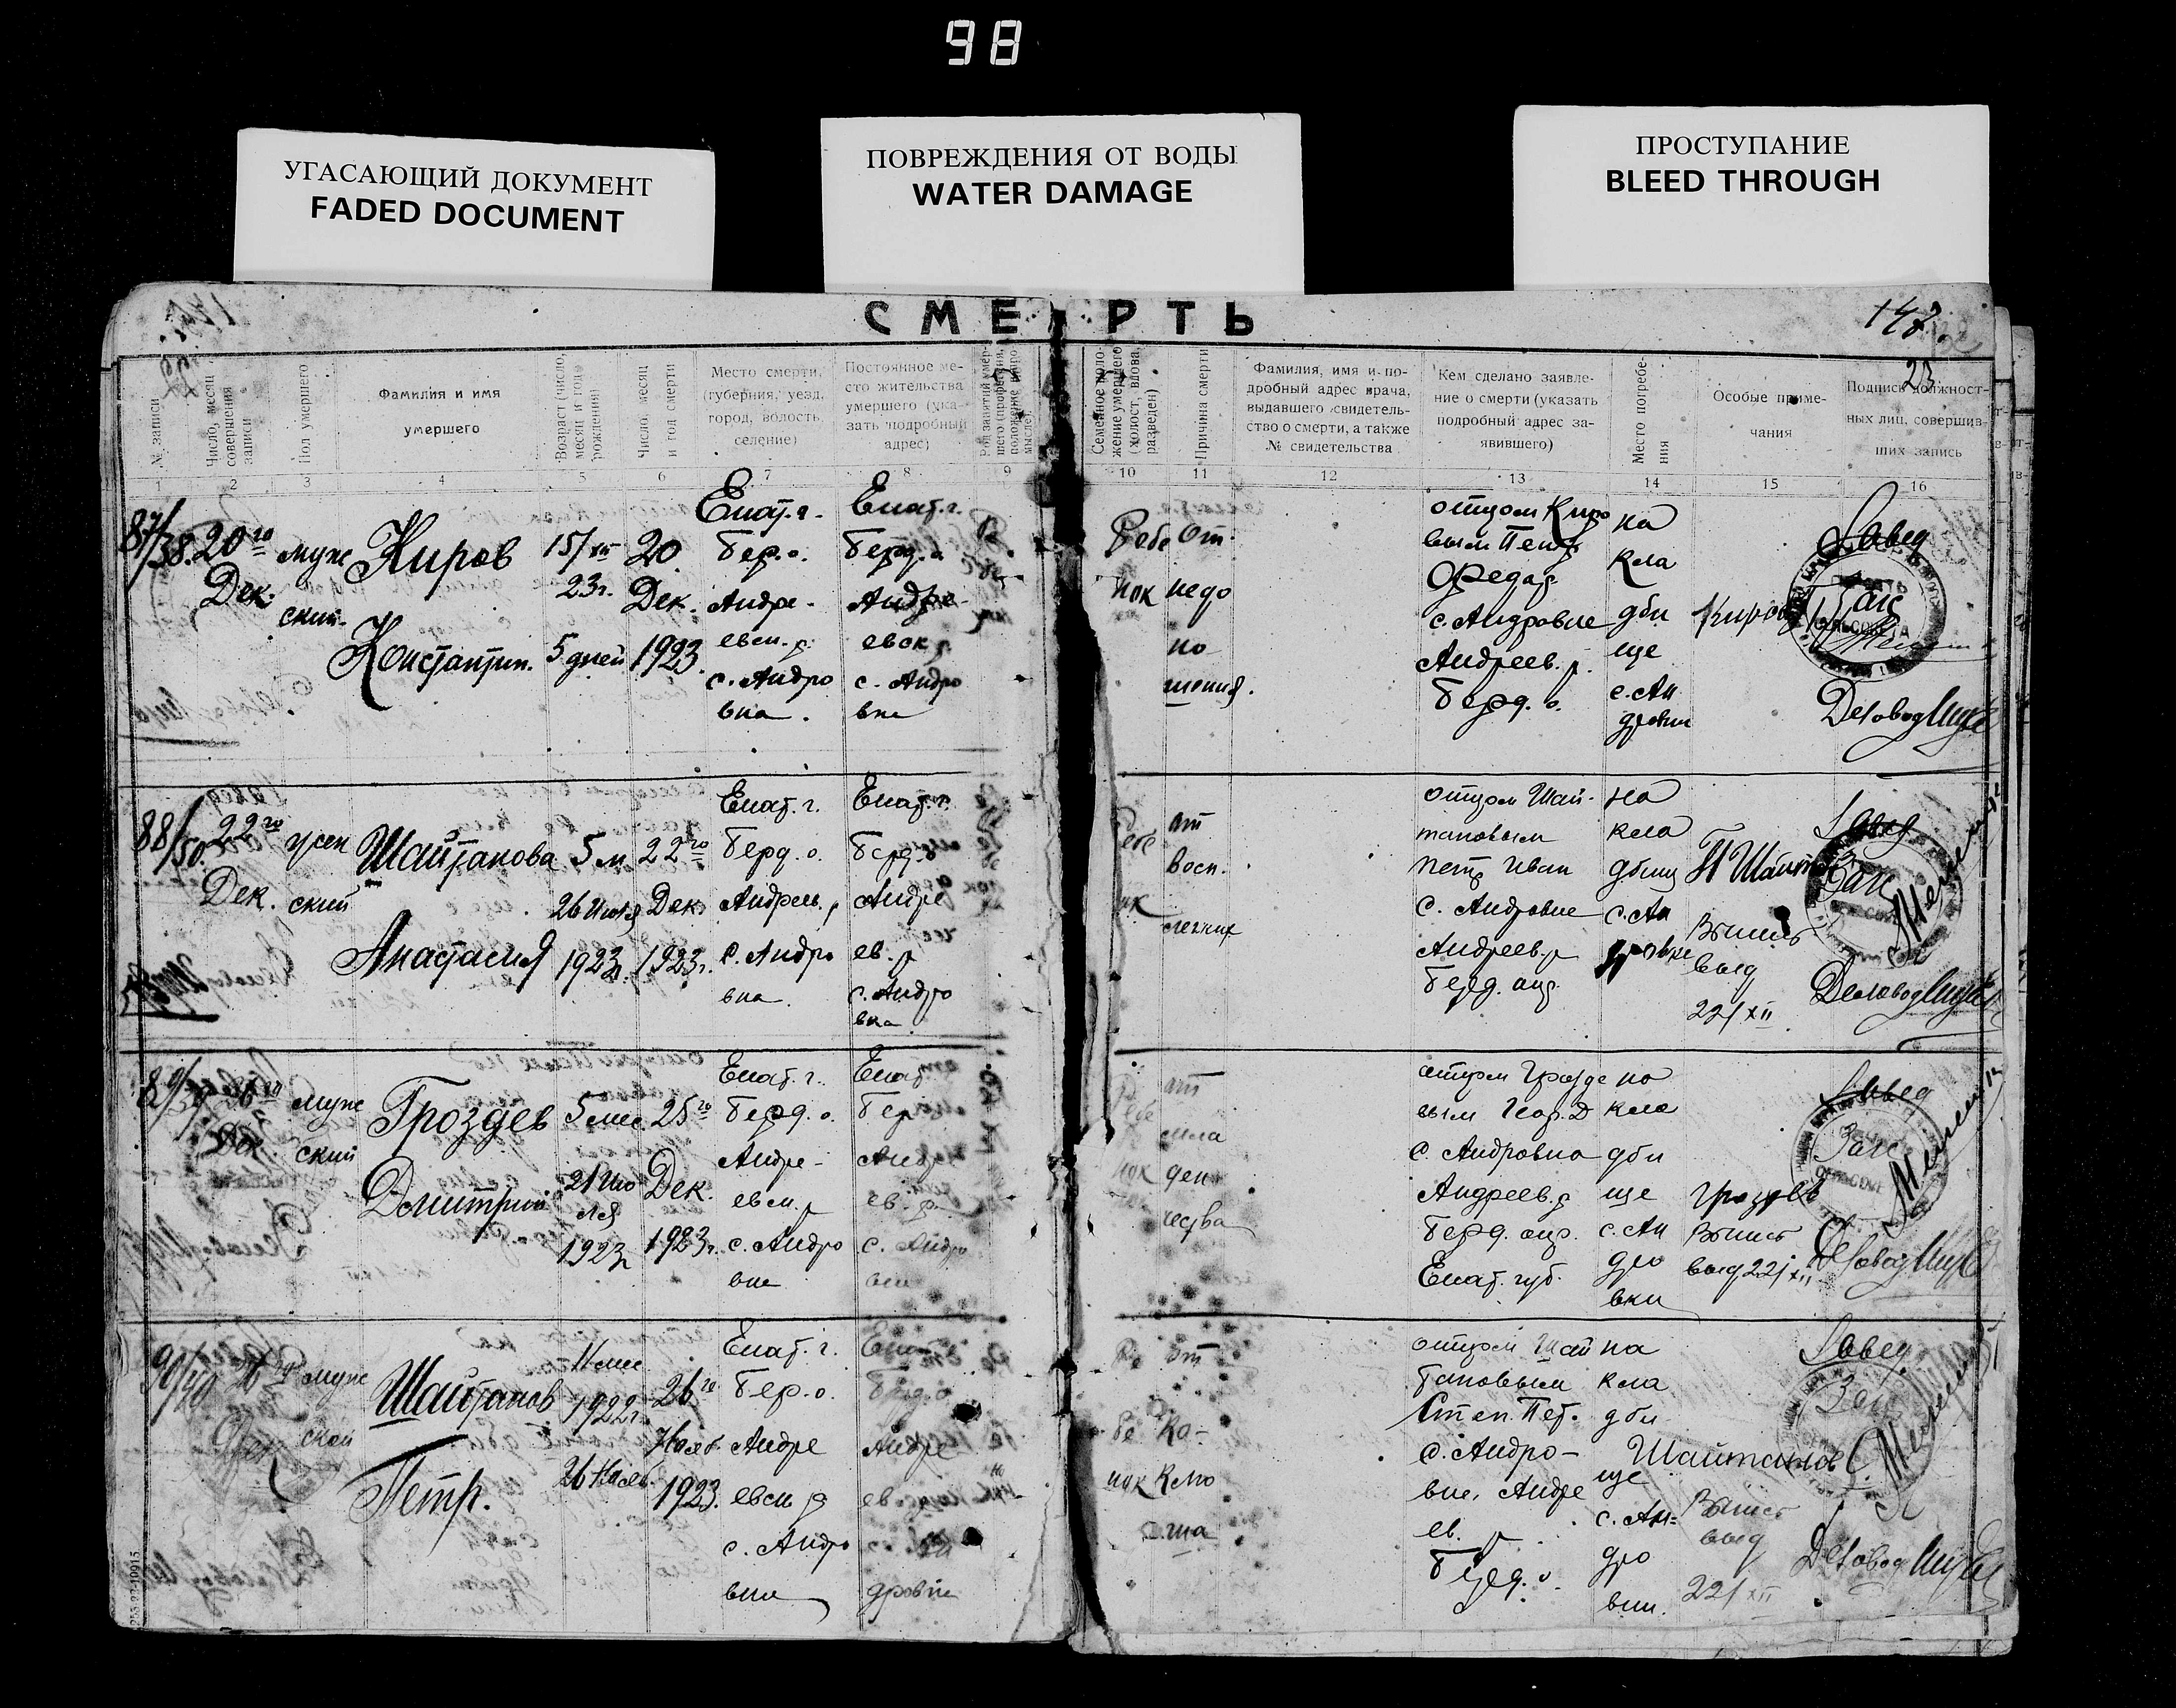 98
УГАСАЮЩИЙ ДОКУМЕНТ
FADED DOCUMENT
ПОВРЕЖДЕНИЯ ОТ ВОДЫ
WATER DAMAGE
ПРОСТУПАНИЕ
BLEED THROUGH
СМЕРТЬ
147
23
№ записи
Число, месяц
совершения
записи
Пол умершего
Фамилия и имя
умершего
Возраст (число,
месяц и год
рождения)
Число, месяц
и год смерти
Место смерти,
(губерния, уезд,
город, волость,
селение)
Постоянное ме-
сто жительства
умершего (ука-
зать подробный
адрес)
Род занятий умер-
шего (профессия,
положение в про
мысле).
Семейное поло-
жение умершего
(холост, вдова,
разведен)
Причина смерти
Фамилия, имя и по-
дробный адрес врача,
выдавшего свидетель-
ство о смерти, а также
№ свидетельства
Кем сделано заявле-
ние о смерти (указать
подробный адрес за-
явившего)
Место погребе-
ния
Особые приме-
чания
Подпись должност-
ных лиц, совершив-
ших запись
1 2 3 4 5 6 7 8 9 10 11 12 13 14 15 16
87/38.
20го
Дек.
муж
ский
Киров
Константин.
15/XII
23г.
5 дней
20
Дек.
1923.
Екат. г.
Бер. о.
Андре-
евск. р.
с. Андро
вка.
Екат. г.
Берд. о.
Андре-
евск р.
с. Андро
вка
Ребе
нок
от
недо
но
шения.
отцом Киро
вым Петр
Федар.
с. Андровке
Андреев. р.
Берд. о.
на
кла
дби
ще
с. Ан
дровки
Киров
Завед
Загс
Деловод
88/50.
22го
Дек.
жен
ский
Шайтанова
Анастасия
5 м
26 Июля
1923г.
22го
Дек.
1923г.
Екат. г.
Берд. о.
Андреев. р
с. Андро
вка.
Екат. г.
Берд. о
Андре
ев. р
с. Андро
вка
от
Восп.
легких
отцом Шай-
тановым
Петр Иван
с. Андровке
Андреев. р
Берд. окр.
на
кла
дбищ
с. Ан
дровке
П Шайт
выд
22/XII
Завед
Загс
Деловод
89/39
26го
Дек.
муж
ский
Гроздев
Дмитрий
5 мес.
21 Ию
ля
1923г
25го
Дек.
1923г.
Екат. г.
Берд. о.
Андре-
евск. р
с. Андро
вке
Екат.
Бер
Андр
ев. р.
с. Андро
от
мла
ден
чества
отцом Грозде
вым Геор. Д
с. Андровка
Андреев. р
Берд. окр.
Екат. губ.
на
кла
дби
ще
с. Ан
дро
вки
Гроздев
выд 22/XII
Завед
Загс
Деловод
90/40
26го
Дек
муж
ской
Шайтанов
Петр.
11 мес
1922г.
26 Нояб.
26го
Нояб.
1923.
Екат. г.
Бер. о.
Андре
евск р
с. Андро
вки
Андре
ев. р
дровке
Ре
бе
нок
от
Ко-
клю
ша
отцом Шай
тановым
Степ. Пет.
с. Андро-
вке, Андре
ев. р
Берд. о.
на
кла
дби
ще
с. Ан-
дро
вки.
Шайтанов С.
выд
22/XII
Завед.
Загс
Деловод